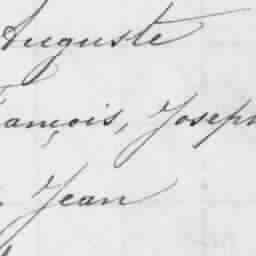 Auguste
François, Joseph
Jean